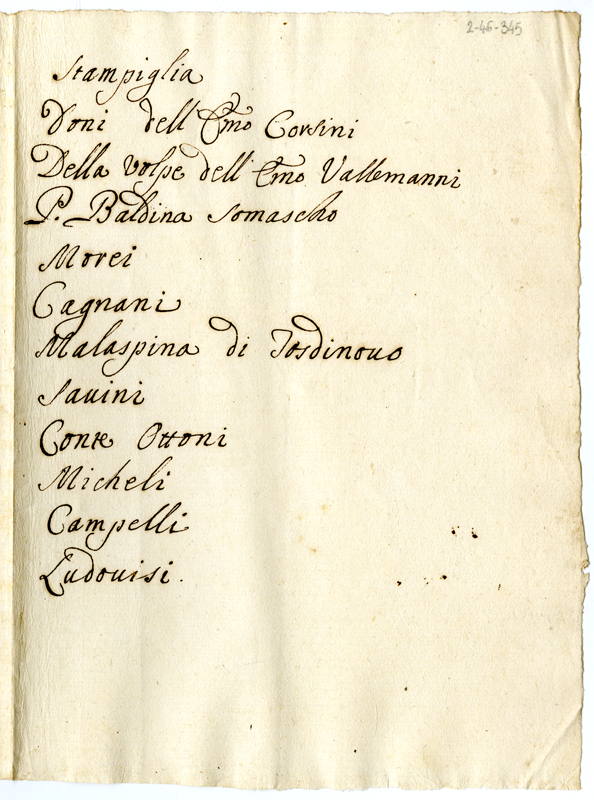 2-46-345
Stampiglia
Doni dell Emo Corsini
Della volpe dell' Emo Vallemanni
P. Baldina Somascho
Morei
Cagnani
Malaspina di Fosdinouo
Sauini
Conte Ottoni
Micheli
Campelli
Ludouisi.